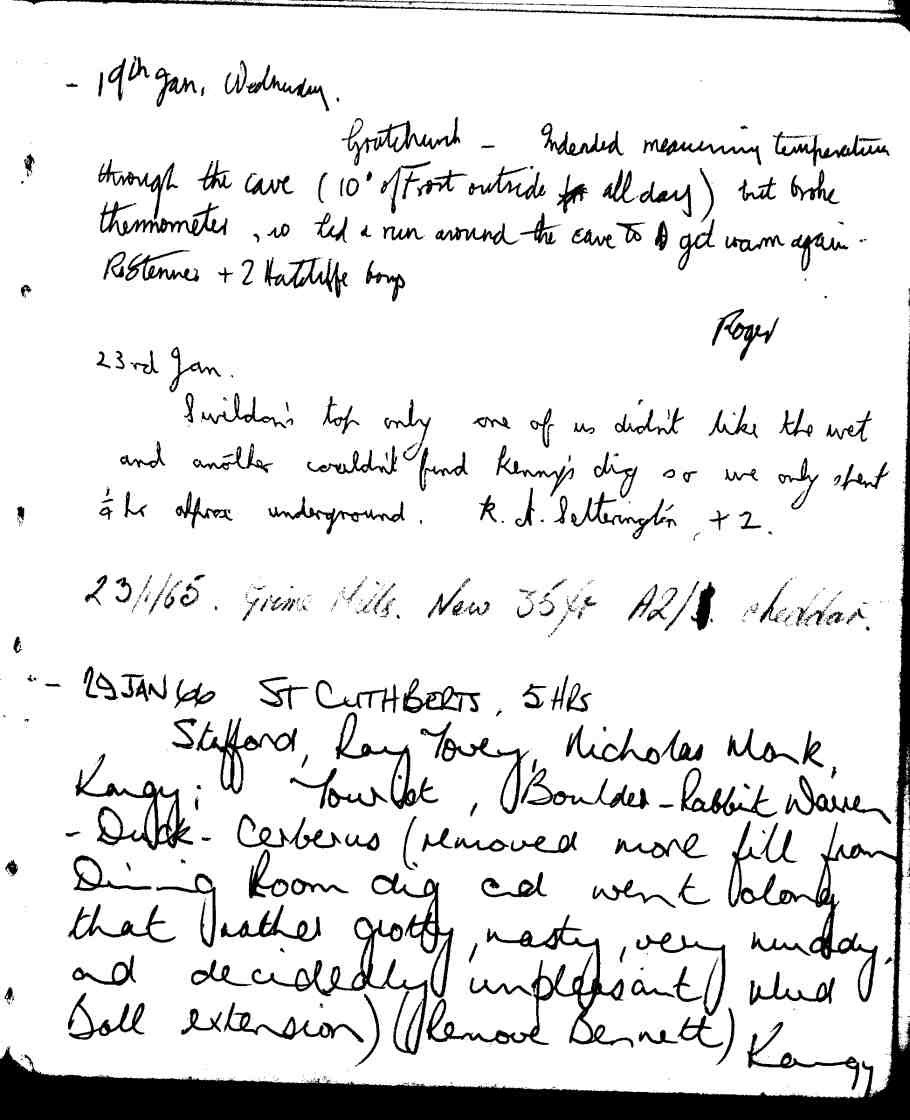 - 19th Jan, Wednesday.
Goatchurch - Indended measuring temperature
through the cave (10° of Frost outside all day) but broke
thermometer, so had a run around the cave to get warm again.
R Stenner + 2 Hatcliffe boys
Roger
23rd Jan.
Swildon's top only one of us didn't like the wet
and another couldn't find Kenny's dig so we only spent
¼ hr approx underground. R. A. Setterington, + 2.
23/1/65. Mills. New 35 A2/ cheddar.
- 29 JAN 66 ST CUTHBERTS, 5 HRS
Stafford, Ray Tovey, Nicholas Monk,
Kangy; Tourist, Boulder-Rabbit Warren
- Duck - Cerberus (removed more fill from
Dining Room dig and went along
that rather grotty, nasty, very muddy,
and decidedly unpleasant Mud
Ball extension) (Remove Bennett)
Kangy